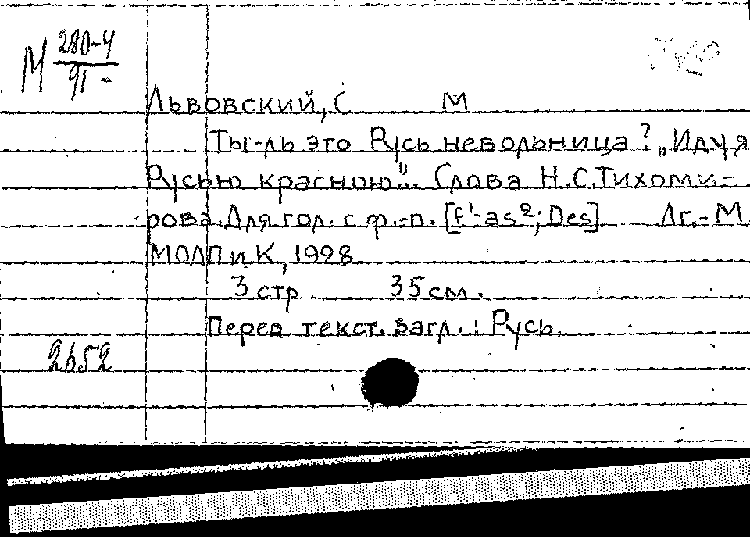 М 280-4
91-
Львовский, С М
Ты-ль это Русь невольница? „Иду я
Русью красною". Слова Н.С.Тихоми-
рова. Для гол. с ф.-п. [f¹-as²; Des] Лг.-М.
МОДПиК, 1928
3 стр 35 см.
Перев текст. загл.: Русь
2652